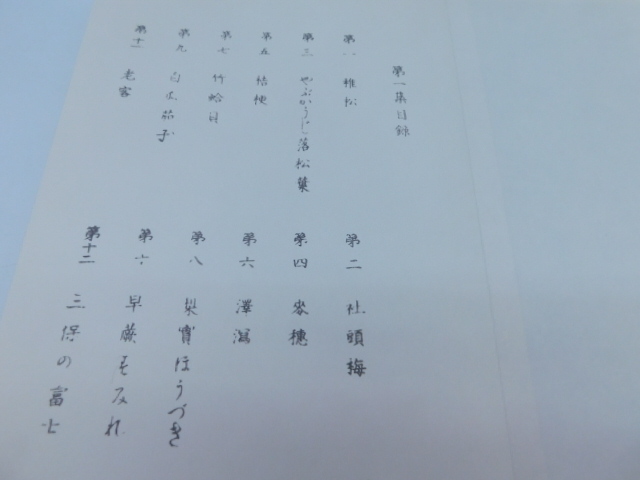 第一集目録
第一 稚松
第二 社頭梅
第三 やぶかうじに落松葉
第四 麥穂
第五 桔梗
第六 澤瀉
第七 竹
第八 果實ほうづき
第九
第十 早蕨すみれ
第十一 老客
第十二 三保の富士